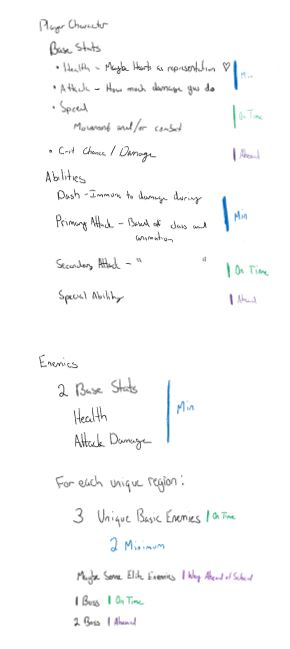 Player Character
Base Stats
• Health - Maybe Hearts as representation ♡
• Attack - How much damage you do
Min
• Speed
Movement and/or combat
On Time
• Crit Chance / Damage
Ahead
Abilities
Dash - Immune to damage during
Primary Attack - Based of class and
animation
Min
Secondary Attack - " "
On Time
Special Ability
Ahead
Enemies
2 Base Stats
Health
Attack Damage
Min
For each unique region:
3 Unique Basic Enemies | On Time
2 Minimum
Maybe Some Elite Enemies | Way Ahead of Sched
1 Boss | On Time
2 Boss | Ahead